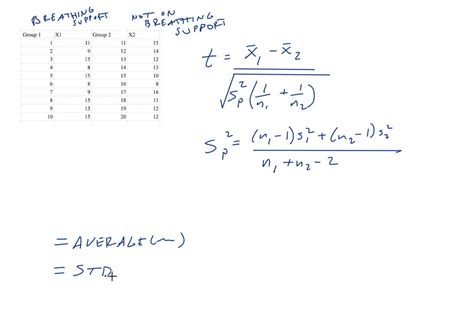 BREATHING SUPPORT
NOT ON BREATHING SUPPORT
Group 1 X1 Group 2 X2
1 11 11 15
2 9 12 14
3 13 13 12
4 8 14 13
5 15 15 10
6 8 16 8
7 9 17 16
8 15 18 11
9 13 19 12
10 15 20 12
t = x̄₁ − x̄₂ / √(Sp²(1/n₁ + 1/n₂))
Sp² = (n₁−1)s₁² + (n₂−1)s₂² / n₁ + n₂ − 2
= AVERAGE(~)
= STD